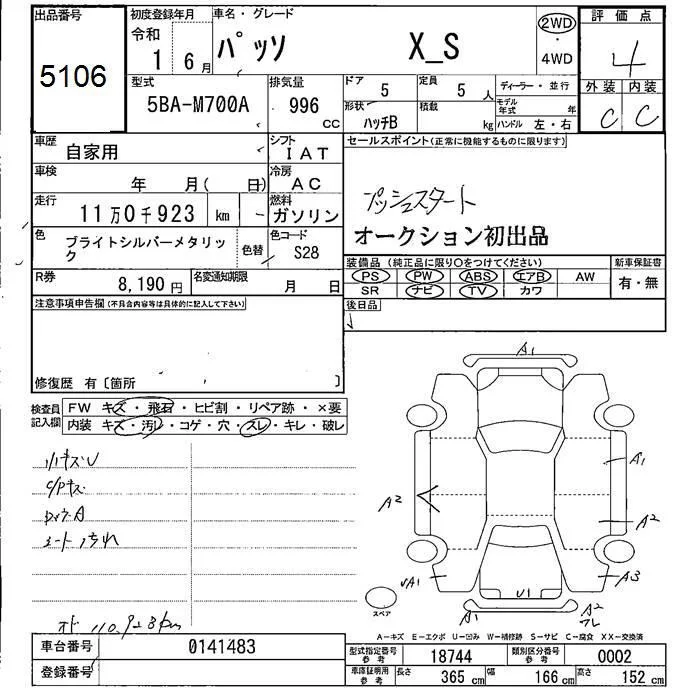 出品番号
5106
初度登録年月
令和
1 6月
車名・グレード
パッソ X_S
2WD
・
4WD
評価点
4
外装 内装
C C
型式
5BA-M700A
排気量
996
CC
ドア
5
定員
5 人
形状
ハッチB
積載
kg
ディーラー・並行
モデル年式 年
ハンドル 左・右
車歴
自家用
シフト
IAT
車検
年 月( 日)
冷房
AC
走行
11万0千923 km
燃料
ガソリン
色
ブライトシルバーメタリック
色替
色コード
S28
R券
8,190円
名変通知期限
月 日
セールスポイント(正常に機能するものに限ります)
プッシュスタート
オークション初出品
装備品(純正品に限り○をつけてください)
PS PW ABS エアB AW
SR ナビ TV カワ
新車保証書
有・無
後日品
注意事項申告欄(不具合内容等は具体的に記入して下さい)
修復歴 有〔箇所 〕
検査員記入欄
FW キズ・飛石・ヒビ割・リペア跡・×要
内装 キズ・汚レ・コゲ・穴・スレ・キレ・破レ
シート汚れ
110,923km
A1
A1
A2
A2
A3
A1
U1
A1
A2
スペア
A-キズ E-エクボ U-凹み W-補修跡 S-サビ C-腐食 XX-交換済
車台番号
0141483
登録番号
型式指定番号
参考
18744
類別区分番号
参考
0002
車庫証明用
参考
長さ 365 cm 幅 166 cm 高さ 152 cm